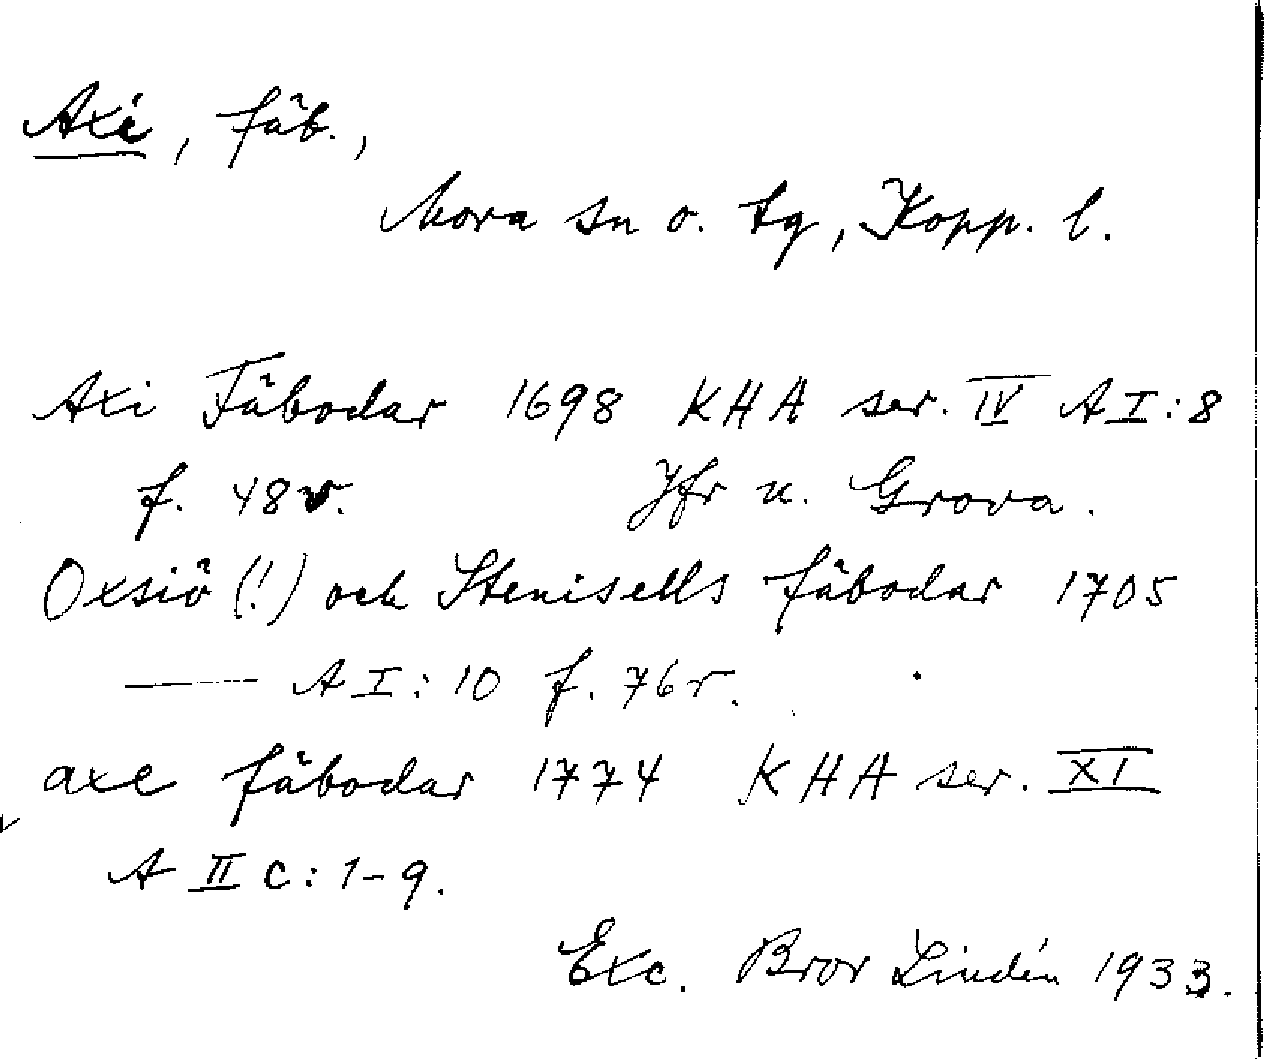 Axi, fäb.,
Mora sn o. tg, Kopp. l.
Axi Fäbodar 1698 KHA ser. IV A I:8
f. 48v. Jfr u. Grova.
Oxsiö (!) och Stenisells fäbodar 1705
— A I:10 f. 76r.
axe fäbodar 1774 KHA ser. XI
A II c:1-9.
Exc. Bror Lindén 1933.